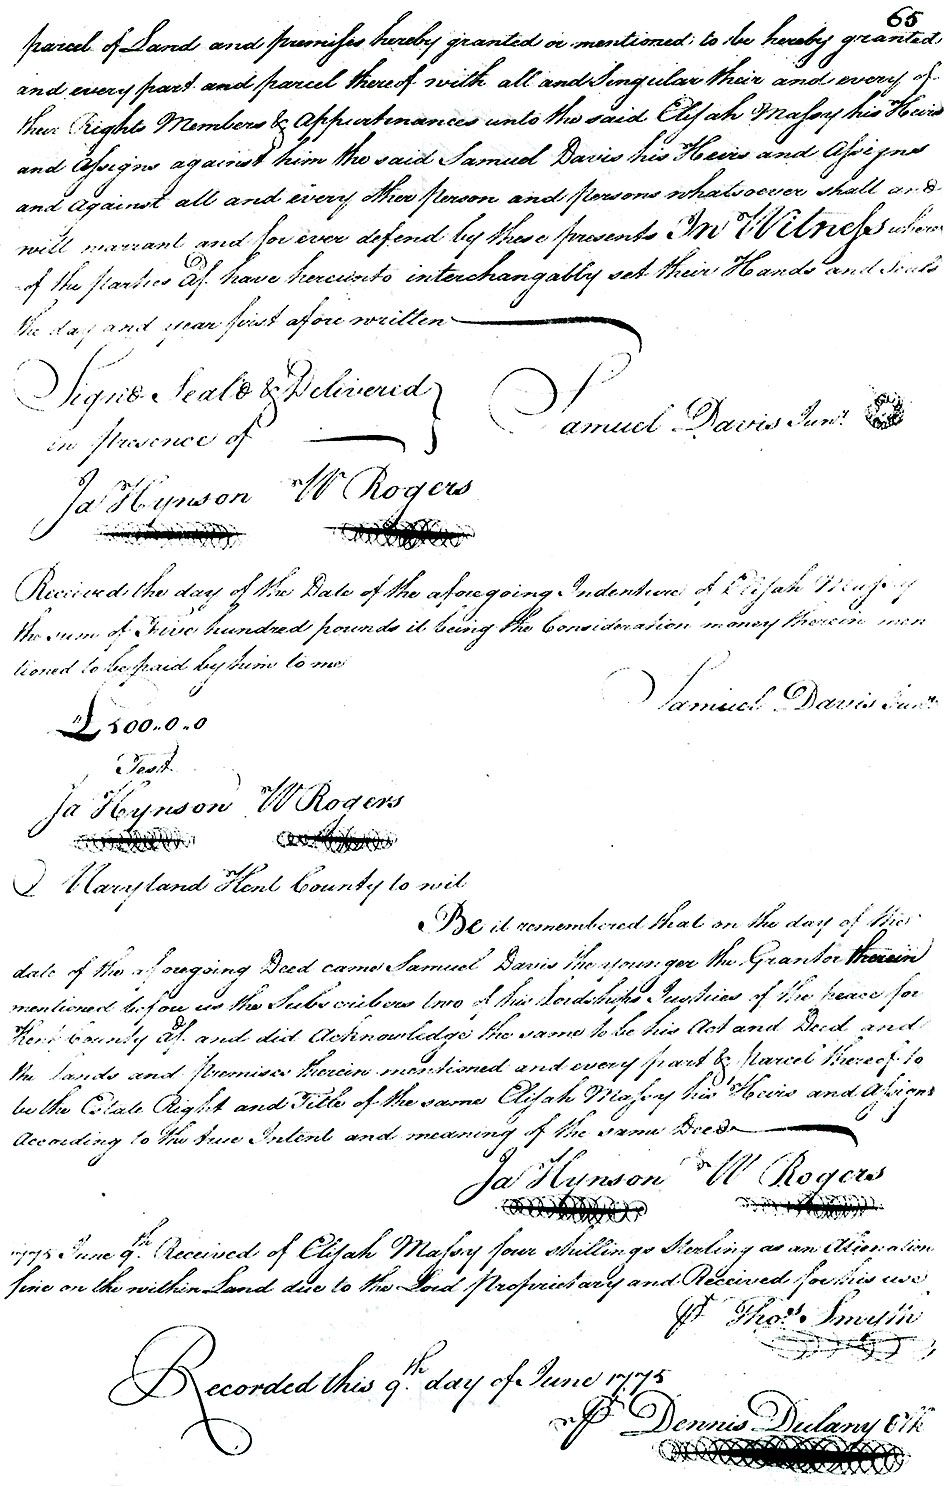 65
parcel of Land and premises hereby granted or mentioned to be hereby granted
and every part and parcel thereof with all and Singular their and every of
their Rights Members & Appurtinances unto the said Elijah Massy his Heirs
and Assigns against him the said Samuel Davis his Heirs and Assigns
and Against all and every other person and persons whatsoever shall and
will warrant and for ever defend by these presents In Witness where
of the parties Af. have hereunto interchangably set their Hands and Seals
the day and year first afore written
Signd Seald & Delivered
in presence of
Samuel Davis Junr.
Ja Hynson W Rogers
Received the day of the Date of the aforegoing Indenture of Elijah Massy
the sum of Five hundred pounds it being the Consideration money therein men
tioned to be paid by him to me
Samuel Davis Junr.
£500..0..0
Test
Ja Hynson W Rogers
Maryland Kent County to wit
Be it remembered that on the day of the
date of the aforegoing Deed came Samuel Davis the younger the Grantor therein
mentioned before us the Subscribers two of his Lordships Justices of the peace for
Kent County Af. and did Acknowledge the same to be his Act and Deed and
the Lands and premises therein mentioned and every part & parcel thereof to
be the Estate Right and Title of the same Elijah Massy his Heirs and Assigns
According to the true Intent and meaning of the same Deed
Ja Hynson W Rogers
1775 June 9th. Received of Elijah Massy four shillings Sterling as an Alienation
fine on the within Land due to the Lord Proprietary and Received for his use
P Thos. Smyth
Recorded this 9th. day of June 1775
P Dennis Dulany Clk